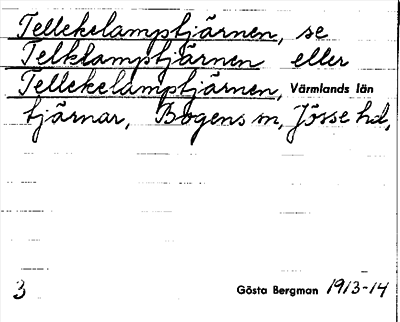 Tellekelamptjärnen, se
Telklamptjärnen eller
Tellekelamptjärnen, Värmlands län
tjärnar, Bogens sn, Jösse hd,
3 Gösta Bergman 1913-14